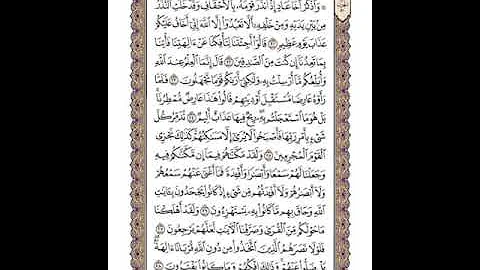 ۞ وَٱذْكُرْ أَخَا عَادٍ إِذْ أَنذَرَ قَوْمَهُۥ بِٱلْأَحْقَافِ وَقَدْ خَلَتِ ٱلنُّذُرُ
مِنۢ بَيْنِ يَدَيْهِ وَمِنْ خَلْفِهِۦٓ أَلَّا تَعْبُدُوٓا۟ إِلَّا ٱللَّهَ إِنِّىٓ أَخَافُ عَلَيْكُمْ
عَذَابَ يَوْمٍ عَظِيمٍ ٢١ قَالُوٓا۟ أَجِئْتَنَا لِتَأْفِكَنَا عَنْ ءَالِهَتِنَا فَأْتِنَا
بِمَا تَعِدُنَآ إِن كُنتَ مِنَ ٱلصَّٰدِقِينَ ٢٢ قَالَ إِنَّمَا ٱلْعِلْمُ عِندَ ٱللَّهِ
وَأُبَلِّغُكُم مَّآ أُرْسِلْتُ بِهِۦ وَلَٰكِنِّىٓ أَرَىٰكُمْ قَوْمًا تَجْهَلُونَ ٢٣ فَلَمَّا
رَأَوْهُ عَارِضًا مُّسْتَقْبِلَ أَوْدِيَتِهِمْ قَالُوا۟ هَٰذَا عَارِضٌ مُّمْطِرُنَا
بَلْ هُوَ مَا ٱسْتَعْجَلْتُم بِهِۦ رِيحٌ فِيهَا عَذَابٌ أَلِيمٌ ٢٤ تُدَمِّرُ كُلَّ
شَىْءٍۭ بِأَمْرِ رَبِّهَا فَأَصْبَحُوا۟ لَا يُرَىٰٓ إِلَّا مَسَٰكِنُهُمْ كَذَٰلِكَ نَجْزِى
ٱلْقَوْمَ ٱلْمُجْرِمِينَ ٢٥ وَلَقَدْ مَكَّنَّٰهُمْ فِيمَآ إِن مَّكَّنَّٰكُمْ فِيهِ
وَجَعَلْنَا لَهُمْ سَمْعًا وَأَبْصَٰرًا وَأَفْـِٔدَةً فَمَآ أَغْنَىٰ عَنْهُمْ سَمْعُهُمْ
وَلَآ أَبْصَٰرُهُمْ وَلَآ أَفْـِٔدَتُهُم مِّن شَىْءٍ إِذْ كَانُوا۟ يَجْحَدُونَ بِـَٔايَٰتِ
ٱللَّهِ وَحَاقَ بِهِم مَّا كَانُوا۟ بِهِۦ يَسْتَهْزِءُونَ ٢٦ وَلَقَدْ أَهْلَكْنَا
مَا حَوْلَكُم مِّنَ ٱلْقُرَىٰ وَصَرَّفْنَا ٱلْـَٔايَٰتِ لَعَلَّهُمْ يَرْجِعُونَ ٢٧
فَلَوْلَا نَصَرَهُمُ ٱلَّذِينَ ٱتَّخَذُوا۟ مِن دُونِ ٱللَّهِ قُرْبَانًا ءَالِهَةًۢ
بَلْ ضَلُّوا۟ عَنْهُمْ وَذَٰلِكَ إِفْكُهُمْ وَمَا كَانُوا۟ يَفْتَرُونَ ٢٨